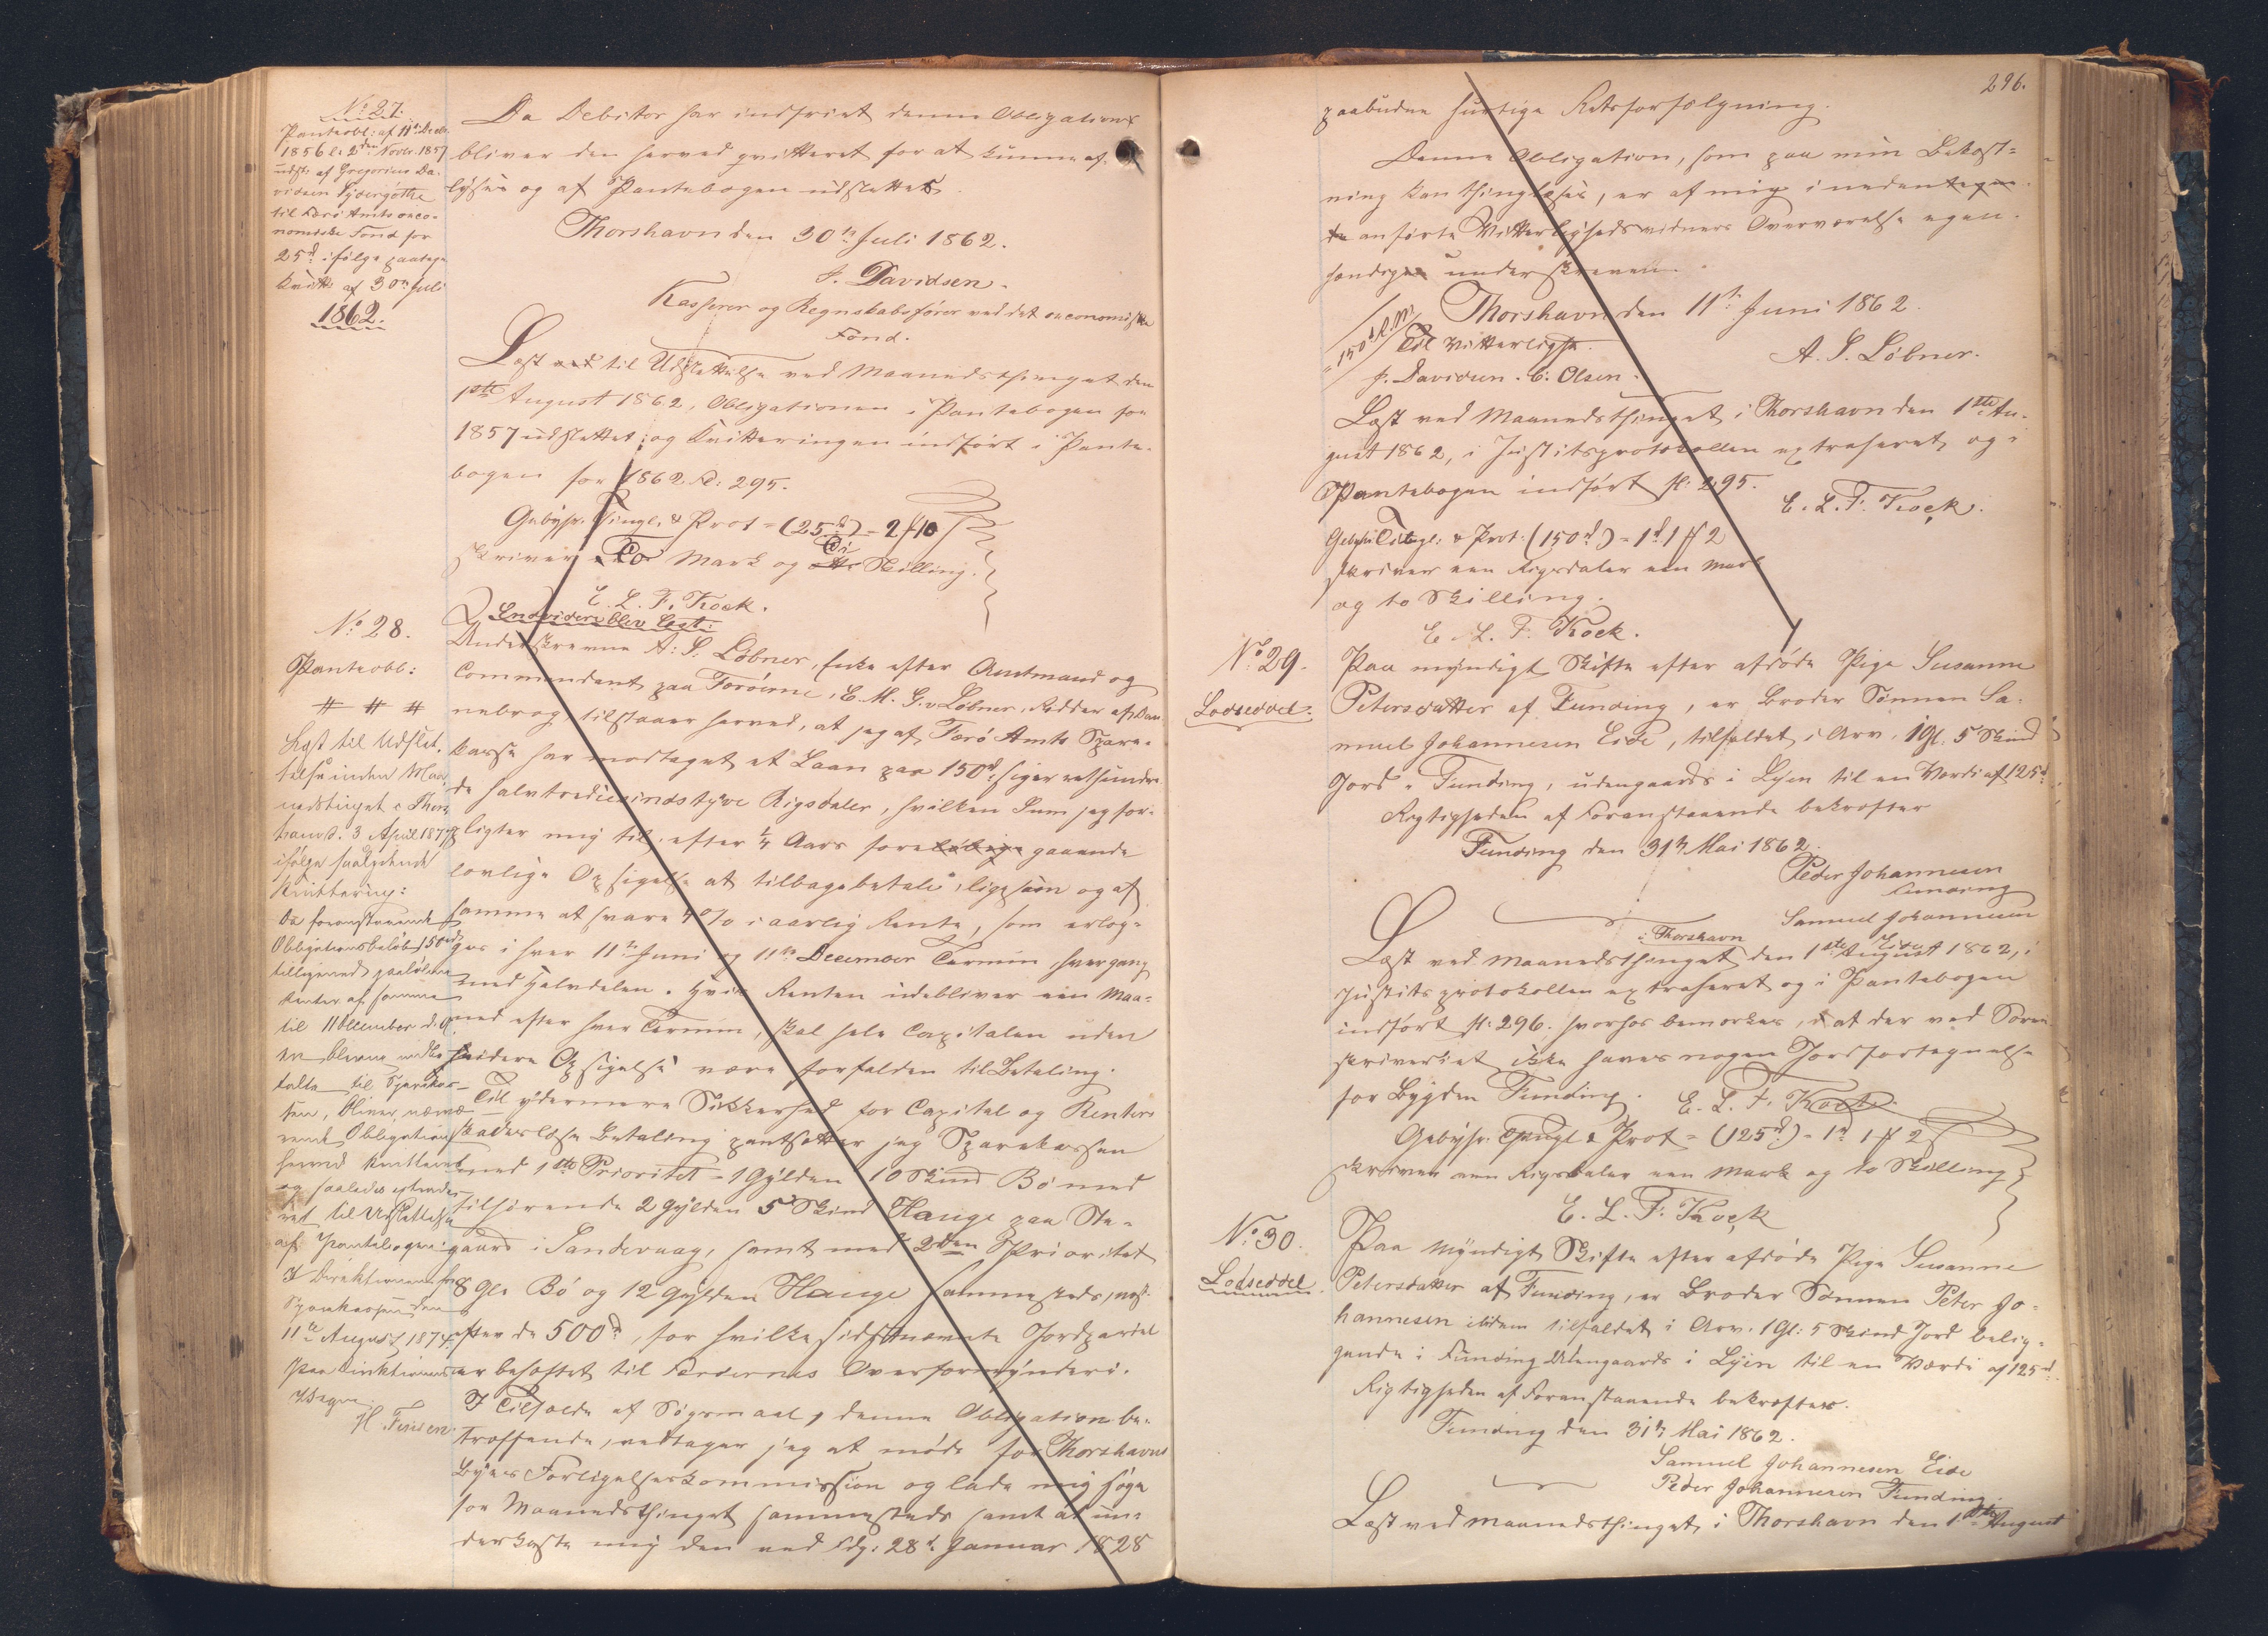 No 27.
Panteobl: af 11te Decbr.
1856 l. 2den Novbr. 1857
udst. af Gregorius Da-
vidsen Sydergøthe
til Færø Amts oeco-
nomiske Fond for
25 rd. ifølge paategn
Kvitt. af 30te Juli
1862.
Da Debitor har indfriet denne Obligation
bliver den herved qvitteret for at kunne af-
lyses og af Pantebogen udslettes.
Thorshavn den 30te Juli 1862.
J. Davidsen.
Kasserer og Regnskabsfører ved det oeconomiske
Fond.
Læst ved til Udslettelse ved Maanedsthinget den
1ste August 1862, Obligationen i Pantebogen for
1857 udslettet og Kvitteringen indført i Pante-
bogen for 1862 Fol: 295.
Gebyhr. Tingl. & Prot = (25 rd) = 2 ʍ 10 ß
skriver To Mark og Ti Skilling.
E. L. F. Kock.
No 28.
Panteobl:
# # #
Læst til Udslet-
telse inden Maa-
nedstinget i Thors-
havn d. 3 April 1877
ifølge saalydende
Kvittering:
Da foranstaaende
Obligationsbeløb 150 rd
tilligemed paaløbne
Renter af samme
til 11 December d. A.
er blevne indbe-
talte til Sparekas-
sen, bliver nærvæ-
rende Obligation
herved kvitteret
og saaledes extrade-
ret til Udslettelse
af Pantebogen.
I Direktionen for
Sparekassen den
11te August 1874.
Paa Direktionens
Vegne
H. Finsen.
Endvidere blev læst:
Underskrevne A: S. Löbner, Enke efter Amtmand og
Commendant paa Færöerne, C. M. G. v Løbner, Ridder af Dan-
nebrog, tilstaaer herved, at jeg af Færö Amts Spare-
kasse har modtaget et Laan paa 150 rd siger eethundre-
de halvtredsindstyve Rigsdaler, hvilken Sum jeg for-
pligter mig til, efter 1/4 Aars foreløbige gaaende
lovlig Opsigelse at tilbagebetale, ligesom og af
samme at svare 4 % i aarlig Rente, som erlæg-
ges i hver 11te Juni og 11te December Termin, hvergang
med Halvdelen. Hvis Renten udebliver een Maa-
ned efter hver Termin, skal hele Capitalen uden
videre Opsigelse være forfalden til Betaling.
Til ydermere Sikkerhed for Capital og Renters
skadesløse Betaling pantsætter jeg Sparekassen
med 1ste Prioritet = 1 Gylden 10 Skind Bö med
tilhørende 2 Gylden 5 Skind Hauge paa Ste-
gaard i Sandevaag, samt med 2den Prioritet
8 Gl. Bö og 12 Gylden Hauge sammesteds, næst
efter de 500 rd, for hvilke sidstnævnte Jordpartel
er behæftet til Færöernes Overformynderi.
I Tilfælde af Søgsmaal, denne Obligation be-
træffende, vedtager jeg at møde for Thorshavns
Byes Forligelseskommission og lade mig søge
for Maanedsthinget sammesteds samt at un-
derkaste mig den ved Fdg: 28d Januar 1828
296.
paabudne hurtige Retsforfølgning.
Denne Obligation, som paa min Bekost-
ning kan thinglæses, er af mig i nedentegne-
de anførte Vitterlighedsvidners Overværelse egen-
hændigen underskreven.
Thorshavn den 11te Juni 1862.
A. S. Löbner.
/150 rd. R.M./
Til Vitterlighed.
J. Davidsen. C. Olsen.
Læst ved Maanedsthinget i Thorshavn den 1ste Au-
gust 1862, i Justitsprotokollen extraheret og i
Pantebogen indført Fl: 295.
E. L. F. Kock.
Gebyhr Tingl: & Prot. (150 rd) = 1 rd 1 ʍ 2
skriver een Rigsdaler een Mark
og to Skilling.
E. L. F. Kock.
No 29.
Lodseddel.
Paa myndigt Skifte efter afdøde Pige Susanne
Petersdatter af Funding, er Broder Sønnen Sa-
muel Johannesen Eide, tilfaldet i Arv, 1 Gl. 5 Skind
Jord i Funding, udengaards i Lyen til en Værdi af 125 rd.
Rigtigheden af Foranstaaende bekræfter
Funding den 31te Mai 1862.
Peder Johannesen
Funding
Samuel Johannesen
Eide
Læst ved Maanedsthinget i Thorshavn den 1ste August 1862, i
Justitsprotokollen extraheret og i Pantebogen
indført Fl: 296. hvorhos bemærkes, at der ved Soren-
skriveriet ikke haves nogen Jordfortegnelse
for Bygden Funding. E. L. F. Kock.
Gebyhr. Tingl & Prot = (125 rd) = 1 rd 1 ʍ 2 ß
skriver een Rigsdaler een Mark og to Skilling
E. L. F. Kock
No 30.
Lodseddel.
Paa Myndigt Skifte efter afdøde Pige Susanne
Petersdatter af Funding, er Broder Sønnen Peter Jo-
hannesen ibidem tilfaldet i Arv. 1 Gl: 5 Skind Jord belig-
gende i Funding Udengaards i Lyen til en Værdi af 125 rd.
Rigtigheden af Foranstaaende bekræfter.
Funding den 31te Mai 1862.
Samuel Johannesen Eide
Peder Johannesen Funding.
Læst ved Maanedsthinget i Thorshavn den 1ste August